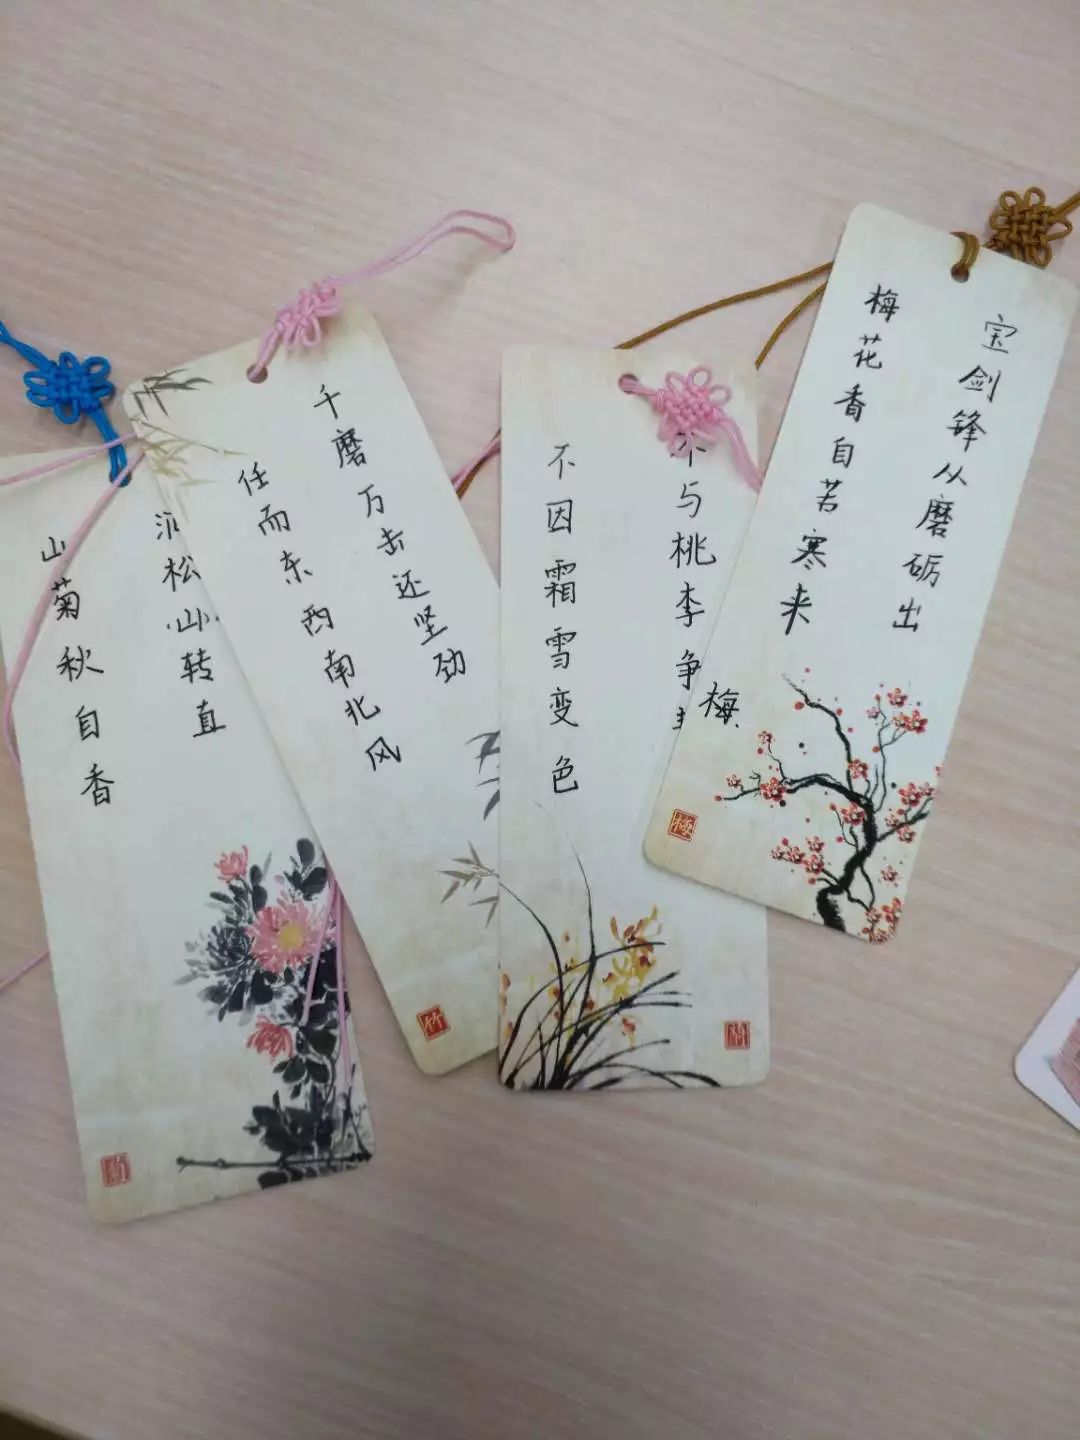 宝剑锋从磨砺出
梅花香自苦寒来
梅
梅
与桃李争
不因霜雪变色
千磨万击还坚劲
任而东西南北风
竹
松山转直
山菊秋自香